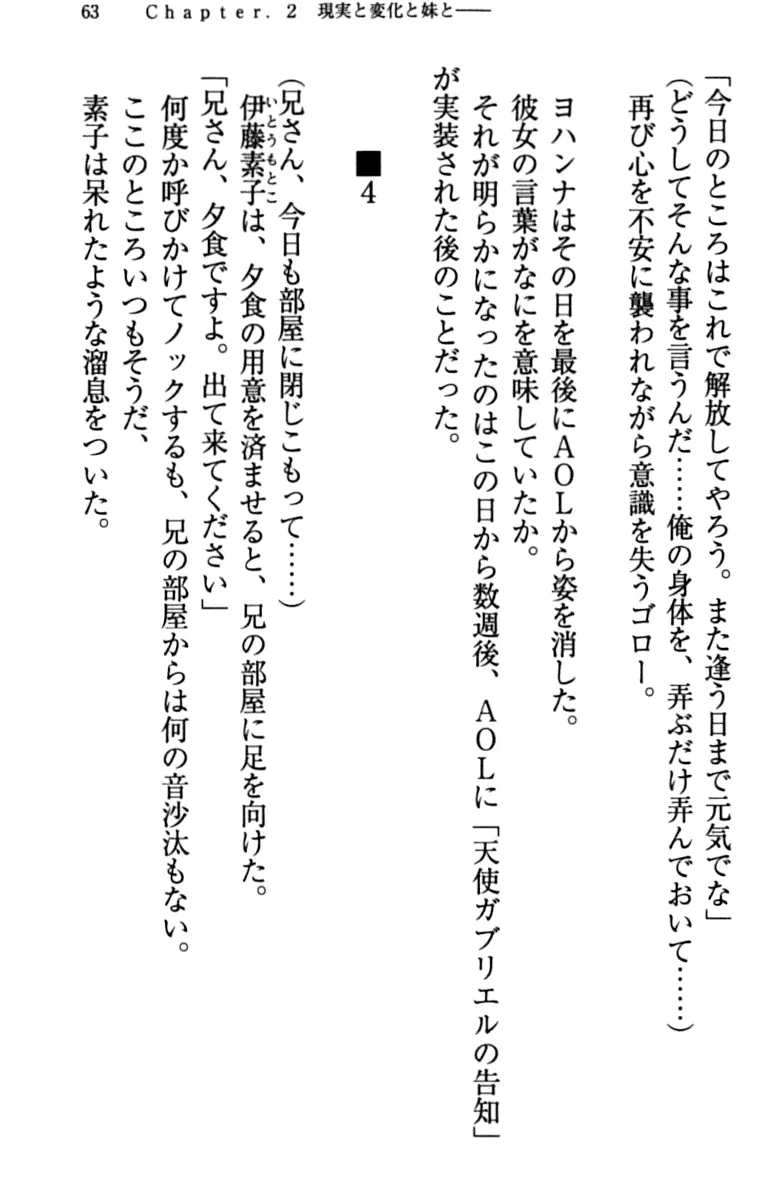 63　Chapter. 2　現実と変化と妹と――
「今日のところはこれで解放してやろう。また逢う日まで元気でな」
（どうしてそんな事を言うんだ……俺の身体を、弄ぶだけ弄んでおいて……）
再び心を不安に襲われながら意識を失うゴロー。
ヨハンナはその日を最後にAOLから姿を消した。
彼女の言葉がなにを意味していたか。
それが明らかになったのはこの日から数週後、AOLに「天使ガブリエルの告知」
が実装された後のことだった。
■4
（兄さん、今日も部屋に閉じこもって……）
いとうもとこ
伊藤素子は、夕食の用意を済ませると、兄の部屋に足を向けた。
「兄さん、夕食ですよ。出て来てください」
何度か呼びかけてノックするも、兄の部屋からは何の音沙汰もない。
ここのところいつもそうだ、
素子は呆れたような溜息をついた。